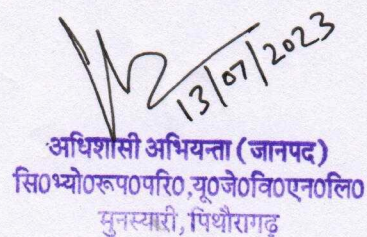 13/07/2023
अधिशासी अभियन्ता (जानपद)
सि0भ्यो0रूप0परि0,यू0जे0वि0एन0लि0
मुनस्यारी, पिथौरागढ़